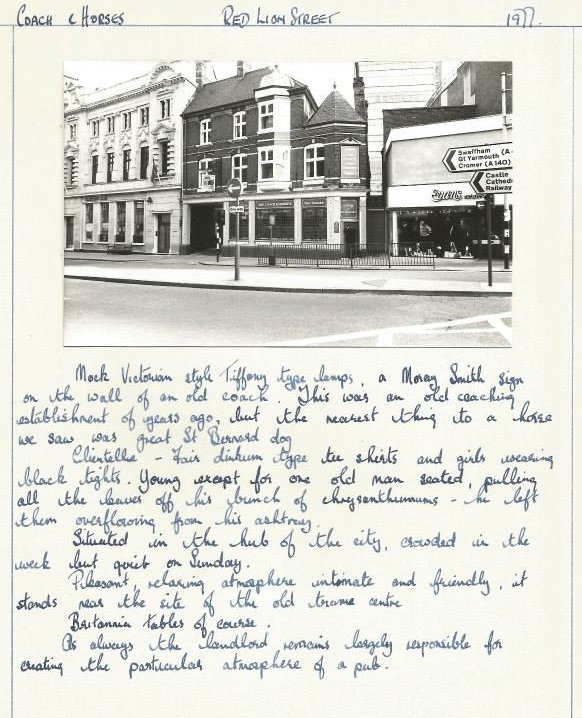 COACH & HORSES RED LION STREET 1977.
Swaffham (A
Gt Yarmouth (A
Cromer (A140)
Castle
Cathed
Railway
Mock Victorian style Tiffany type lamps, a Moray Smith sign
on the wall of an old coach. This was an old coaching
establishment of years ago, but the nearest thing to a horse
we saw was great St Bernard dog
Clientelle - Fair dinkum type tee shirts and girls wearing
black tights. Young except for one old man seated, pulling
all the leaves off his bunch of chrysanthumums - he left
them overflowing from his ashtray.
Situated in the hub of the city, crowded in the
week but quiet on Sunday.
Pleasant, relaxing atmosphere intimate and friendly, it
stands near the site of the old trams centre
Britannia tables of course.
As always the landlord remains largely responsible for
creating the particular atmosphere of a pub.